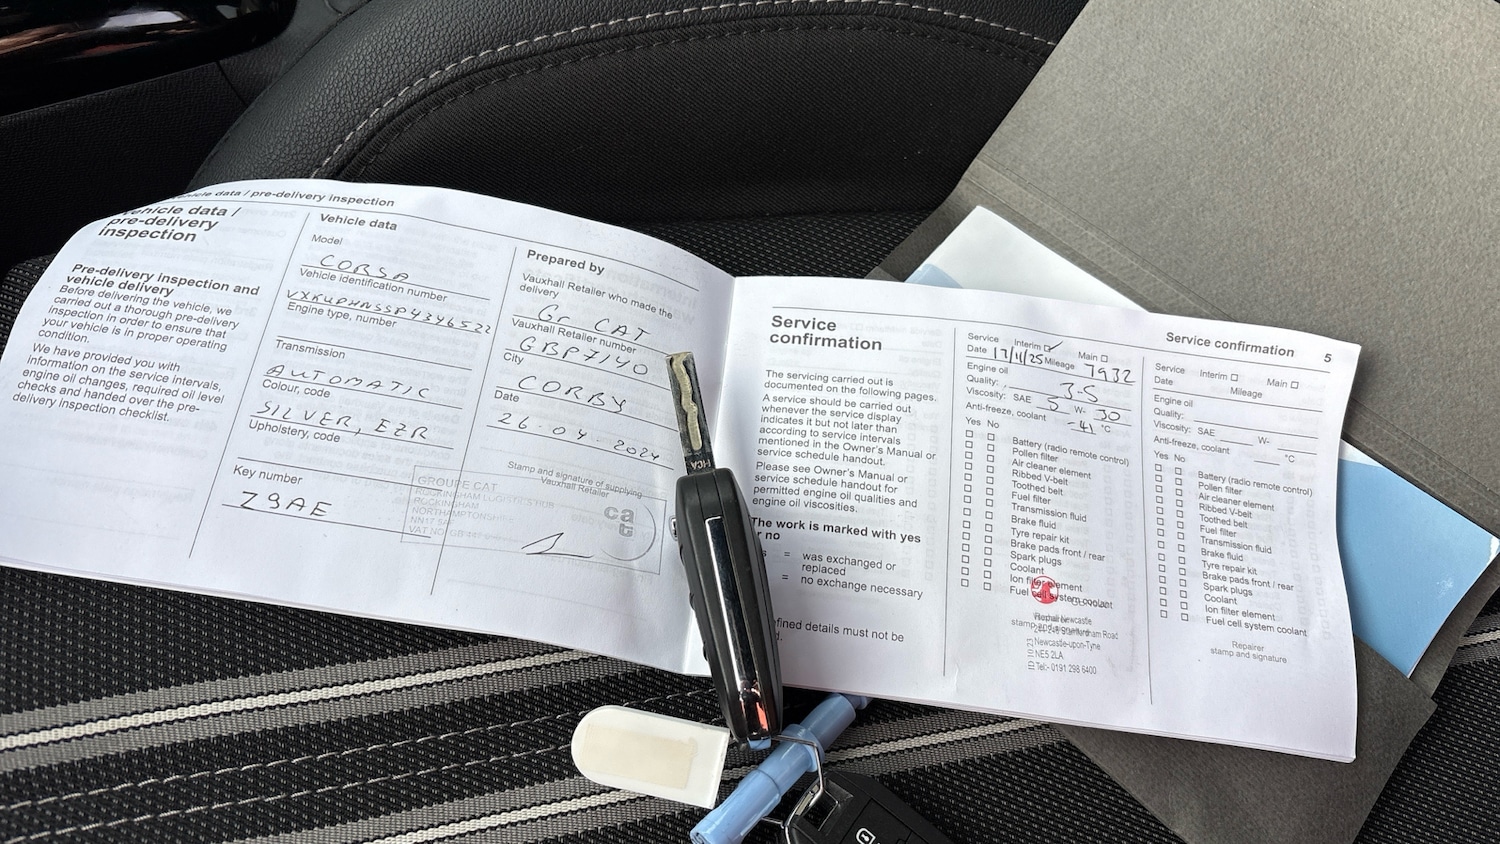 Vehicle data / pre-delivery inspection
Vehicle data /
pre-delivery
inspection
Pre-delivery inspection and
vehicle delivery
Before delivering the vehicle, we
carried out a thorough pre-delivery
inspection in order to ensure that
your vehicle is in proper operating
condition.
We have provided you with
information on the service intervals,
engine oil changes, required oil level
checks and handed over the pre-
delivery inspection checklist.
Vehicle data
Model
CORSA
Vehicle identification number
VXKUPHNSSP4346522
Engine type, number
Transmission
AUTOMATIC
Colour, code
SILVER, EZR
Upholstery, code
Key number
Z9AE
Prepared by
Vauxhall Retailer who made the
delivery
Gr CAT
Vauxhall Retailer number
GBP7140
City
CORBY
Date
26.04.2024
Stamp and signature of supplying
Vauxhall Retailer
GROUPE CAT
ROCKINGHAM
NN17 5A
cat
HCA
Service confirmation 5
Service
confirmation
The servicing carried out is
documented on the following pages.
A service should be carried out
whenever the service display
indicates it but not later than
according to service intervals
mentioned in the Owner's Manual or
service schedule handout.
Please see Owner's Manual or
service schedule handout for
permitted engine oil qualities and
engine oil viscosities.
The work is marked with yes
or no
= was exchanged or
replaced
= no exchange necessary
details must not be
Service Interim Main
Date 17/11/25 Mileage 7932
Engine oil
Quality: 3.5
Viscosity: SAE 5 W- 30
Anti-freeze, coolant -41 °C
Yes No
Battery (radio remote control)
Pollen filter
Air cleaner element
Ribbed V-belt
Toothed belt
Fuel filter
Transmission fluid
Brake fluid
Tyre repair kit
Brake pads front / rear
Spark plugs
Coolant
Ion filter element
Fuel cell system coolant
Repairer
stamp and signature
Newcastle
Road
Newcastle-upon-Tyne
NE5 2LA
Tel:- 0191 298 6400
Service Interim Main
Date Mileage
Engine oil
Quality:
Viscosity: SAE W-
Anti-freeze, coolant °C
Yes No
Battery (radio remote control)
Pollen filter
Air cleaner element
Ribbed V-belt
Toothed belt
Fuel filter
Transmission fluid
Brake fluid
Tyre repair kit
Brake pads front / rear
Spark plugs
Coolant
Ion filter element
Fuel cell system coolant
Repairer
stamp and signature